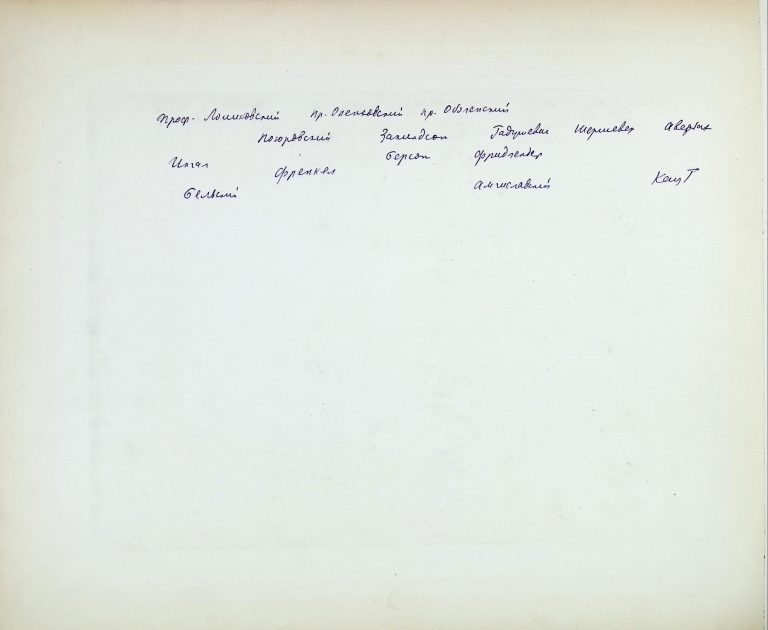 Проф. Ломиковский пр. Опенховский пр. Оболенский
Поюровский Закиндсон Гадушевич Шершевер Аверьих
Инзал Френкел Берсон Фридлендер
Бельский Амчиславский Кацт